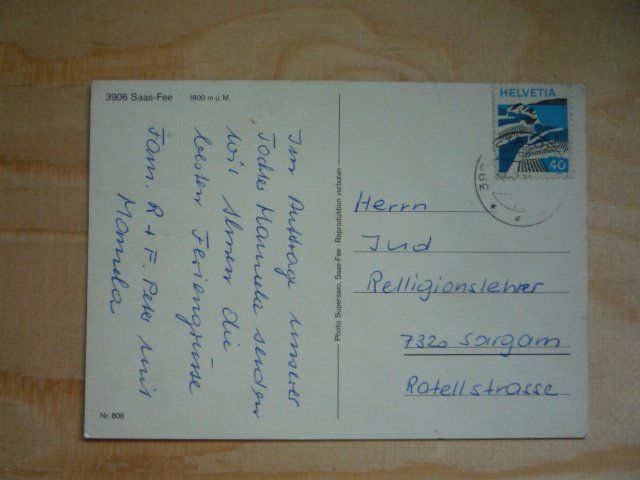 3906 Saas-Fee 1800 m ü. M.
Im Auftrage unserer
Tochter Manuela senden
wir Ihnen die
besten Feriengrüsse
Fam. R + F. Peter mit
Manuela
Nr. 806
Photo Supersaxo, Saas-Fee - Reproduktion verboten
HELVETIA
40
39
Herrn
Jud
Relligionslehrer
7320 Sargam
Ratellstrasse